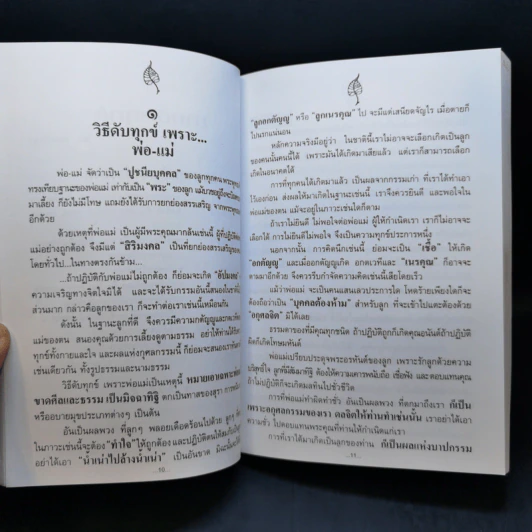 ๑
วิธีดับทุกข์ เพราะ...
พ่อ-แม่
พ่อ-แม่ จัดว่าเป็น "ปูชนียบุคคล" ของลูกทุกคน
ทรงเทียบฐานะของพ่อแม่ เท่ากับเป็น "พระ" ของลูก
มาเลี้ยง ก็ยังไม่มีโทษ แถมยังได้รับการยกย่องสรรเสริญ
อีกด้วย
ด้วยเหตุที่พ่อแม่ เป็นผู้มีพระคุณมากล้นเช่นนี้
พ่อแม่อย่างถูกต้อง จึงมีแต่ "สิริมงคล" เป็นที่ยกย่องสรรเสริญ
โดยทั่วไป...ในทางตรงกันข้าม...
...ถ้าปฏิบัติกับพ่อแม่ไม่ถูกต้อง ก็ย่อมจะเกิด "อัปมงคล"
ความเจริญทางจิตใจมิได้ และจะได้รับกรรมอันนี้สนองใน
ส่วนมาก กล่าวคือลูกของเรา ก็จะทำต่อเราเช่นนี้เหมือนกัน
ดังนั้น ในฐานะลูกที่ดี จึงควรมีความกตัญญูและกตเวที
แม่ของตน สนองคุณด้วยการเลี้ยงดูตามธรรม อย่าให้ท่านได้
ทุกข์ทั้งกายและใจ และผลแห่งกุศลกรรมนี้ ก็ย่อมจะสนองเรา
เช่นเดียวกัน ทั้งรูปธรรมและนามธรรม
วิธีดับทุกข์ เพราะพ่อแม่เป็นเหตุนี้ หมายเอาเฉพาะ
ขาดศีลและธรรม เป็นมิจฉาทิฐิ ตกเป็นทาสของสุรา การพนัน
หรืออบายมุขประเภทต่างๆ เป็นต้น
อันเป็นผลพวง ที่ลูกๆ พลอยเดือดร้อนไปด้วย ลูกๆ
ในภาวะเช่นนี้จะต้อง "ทำใจ" ให้ถูกต้องและปฏิบัติตนให้
อย่าได้เอา "น้ำเน่าไปล้างน้ำเน่า" เป็นอันขาด
...10...
"ลูกอกตัญญู" หรือ "ลูกเนรคุณ" ไป จะมีแต่เสนียดจัญไร เมื่อตายก็
ไปนรกแน่นอน
หลักความจริงมีอยู่ว่า ในชาตินี้เราไม่อาจจะเลือกเกิดเป็นลูก
ของคนนั้นคนนี้ได้ เพราะมันได้เกิดมาเสียแล้ว แต่เราก็สามารถเลือก
เกิดในอนาคตได้
การที่ทุกคนได้เกิดมาแล้ว เป็นผลจากกรรมเก่า ที่เราได้ทำเอา
ไว้เองก่อน ส่งผลให้มาเกิดในฐานะเช่นนี้ เราจึงควรยินดี และพอใจใน
พ่อแม่ของตน แม้จะอยู่ในภาวะเช่นใดก็ตาม
ถ้าเราไม่ยินดี ไม่พอใจต่อพ่อแม่ ผู้ให้กำเนิดเรา เราก็ไม่อาจจะ
เลือกได้ การไม่ยินดีไม่พอใจ จึงเป็นความทุกข์ประการหนึ่ง
นอกจากนั้น การคิดนึกเช่นนี้ ย่อมจะเป็น "เชื้อ" ให้เกิด
"อกตัญญู" และเมื่ออกตัญญูเกิด อกตเวทีและ "เนรคุณ" ก็อาจจะ
ตามมาอีกด้วย จึงควรรีบกำจัดความคิดเช่นนี้เสียโดยเร็ว
แม้ว่าพ่อแม่ จะเป็นคนแสนเลวประการใด โหดร้ายเพียงใดก็จะ
ต้องถือว่าเป็น "บุคคลต้องห้าม" สำหรับลูก ที่จะเข้าไปแตะต้องด้วย
"อกุศลจิต" มิได้เลย
ธรรมดาของที่มีคุณทุกชนิด ถ้าปฏิบัติถูกก็เกิดคุณอนันต์ถ้าปฏิบัติ
ผิดก็เกิดโทษมหันต์
พ่อแม่เปรียบประดุจพระอรหันต์ของลูก เพราะรักลูกด้วยความ
บริสุทธิ์ใจ ลูกจึงสัมมาทิฐิ ต้องให้ความเคารพนับถือ เชื่อฟัง และตอบแทนคุณ
ถ้าไม่ปฏิบัติก็จะเกิดมลทินไปชั่วชีวิต
การที่พ่อแม่ทำผิดทำชั่ว อันเป็นผลพวง ที่ตกมาถึงเรา ก็เป็น
เพราะอกุศลกรรมของเรา ดลจิตให้ท่านทำเช่นนั้น เราอย่าได้เอา
ความชั่ว ไปตอบแทนพระคุณที่ท่านให้กำเนิดแก่เรา
การที่เราได้มาเกิดเป็นลูกของท่าน ก็เป็นผลแห่งบาปกรรม
...11...